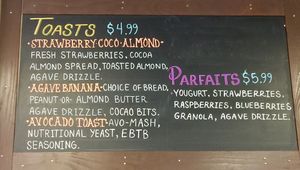 TOASTS $4.99
·STRAWBERRY·COCO·ALMOND·
FRESH STRAWBERRIES, COCOA
ALMOND SPREAD, TOASTED ALMOND,
AGAVE DRIZZLE.
·AGAVE BANANA·CHOICE OF BREAD,
PEANUT OR ALMOND BUTTER
AGAVE DRIZZLE, COCAO BITS.
·AVOCADO TOAST·AVO-MASH,
NUTRITIONAL YEAST, EBTB
SEASONING.
PARFAITS $5.99
·YOUGURT, STRAWBERRIES,
RASPBERRIES, BLUEBERRIES
GRANOLA, AGAVE DRIZZLE.